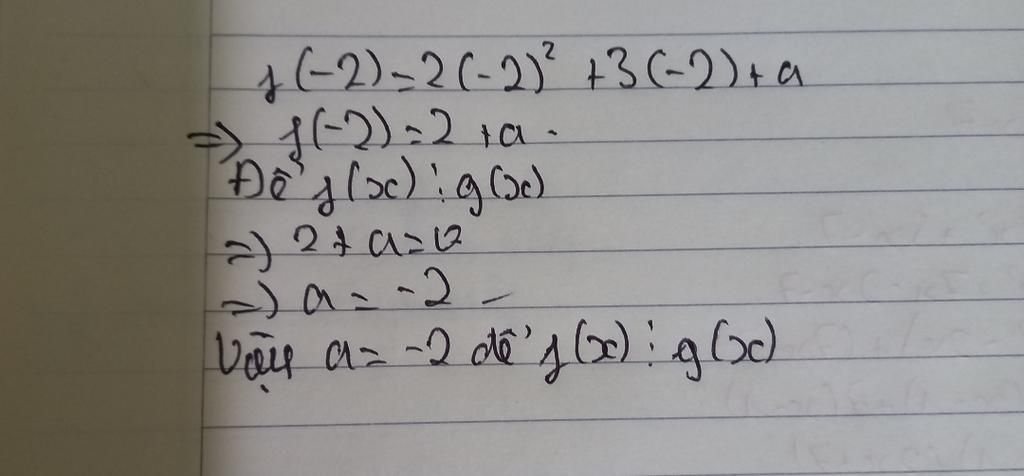 f(-2)=2(-2)² +3(-2)+a
=> f(-2)=2 +a.
Để f(x)⋮g(x)
=> 2+a=0
=> a=-2
Vậy a=-2 để f(x)⋮g(x)